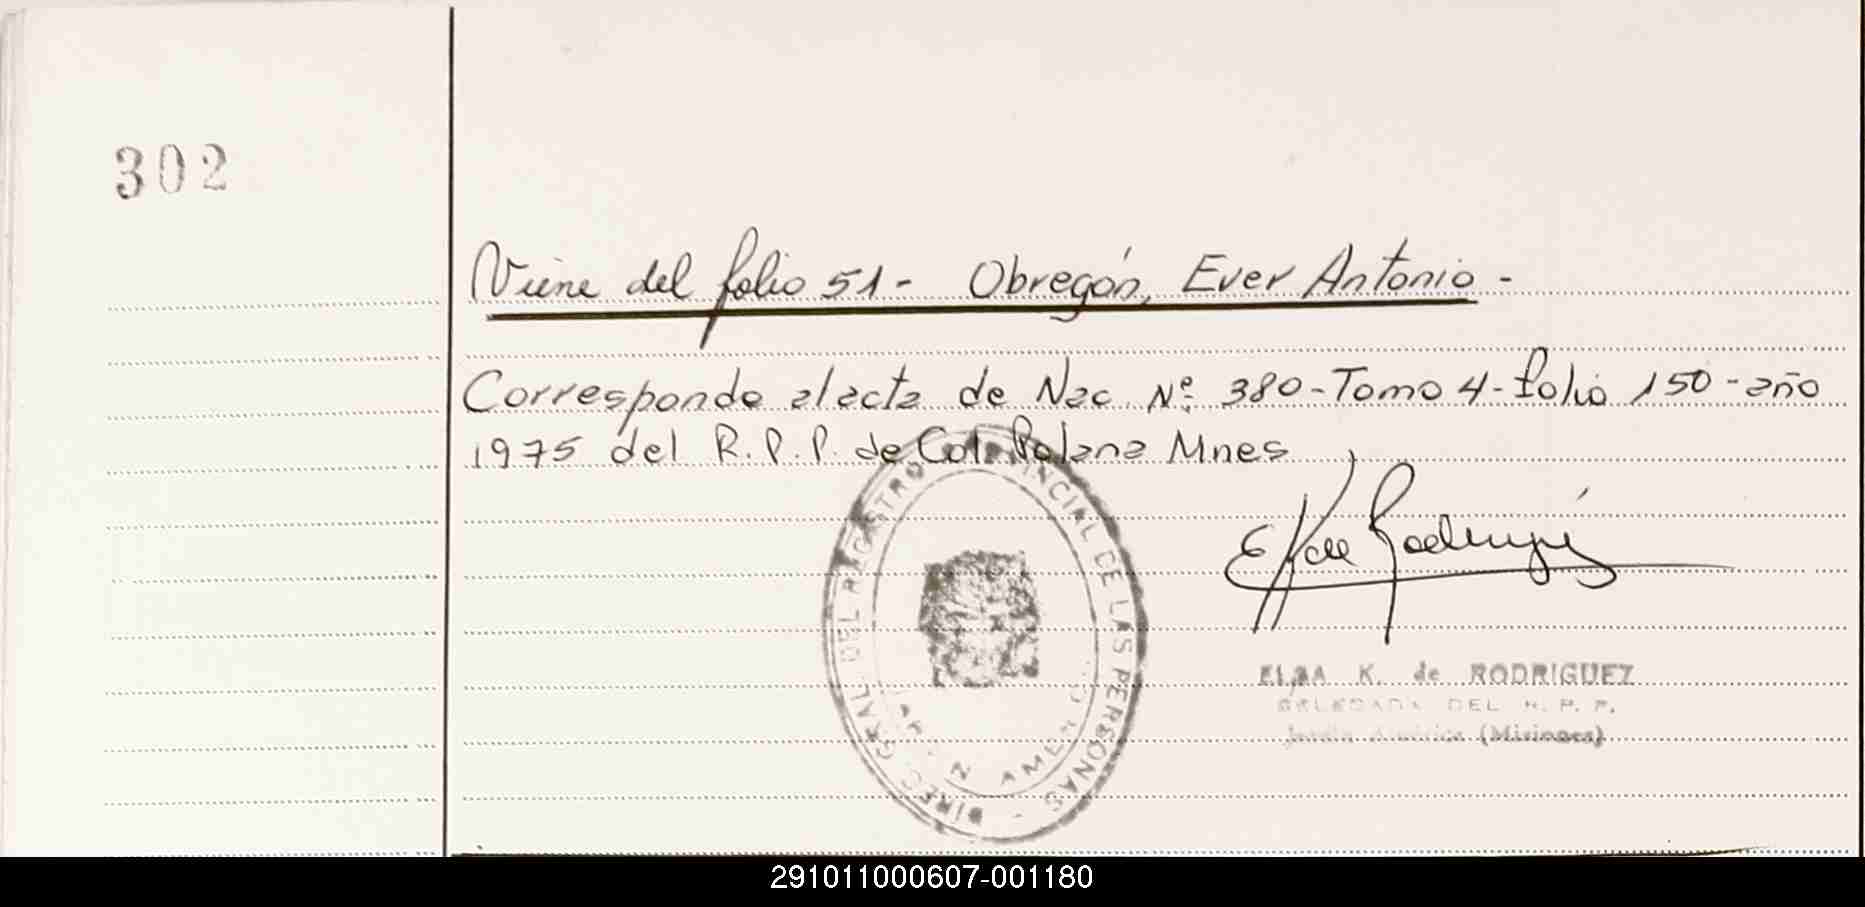 302
Viene del folio 51 - Obregón, Ever Antonio -
Corresponde al acta de Nac. Nº 380 - Tomo 4 - folio 150 - año
1975 del R.P.P. de Col. Polana Mnes
E K de Rodríguez
DIREC. GRAL. DEL REGISTRO PROVINCIAL DE LAS PERSONAS -
JARDIN AMERICA
ELBA K. de RODRIGUEZ
DELEGADA DEL R. P. P.
Jardín América (Misiones)
291011000607-001180